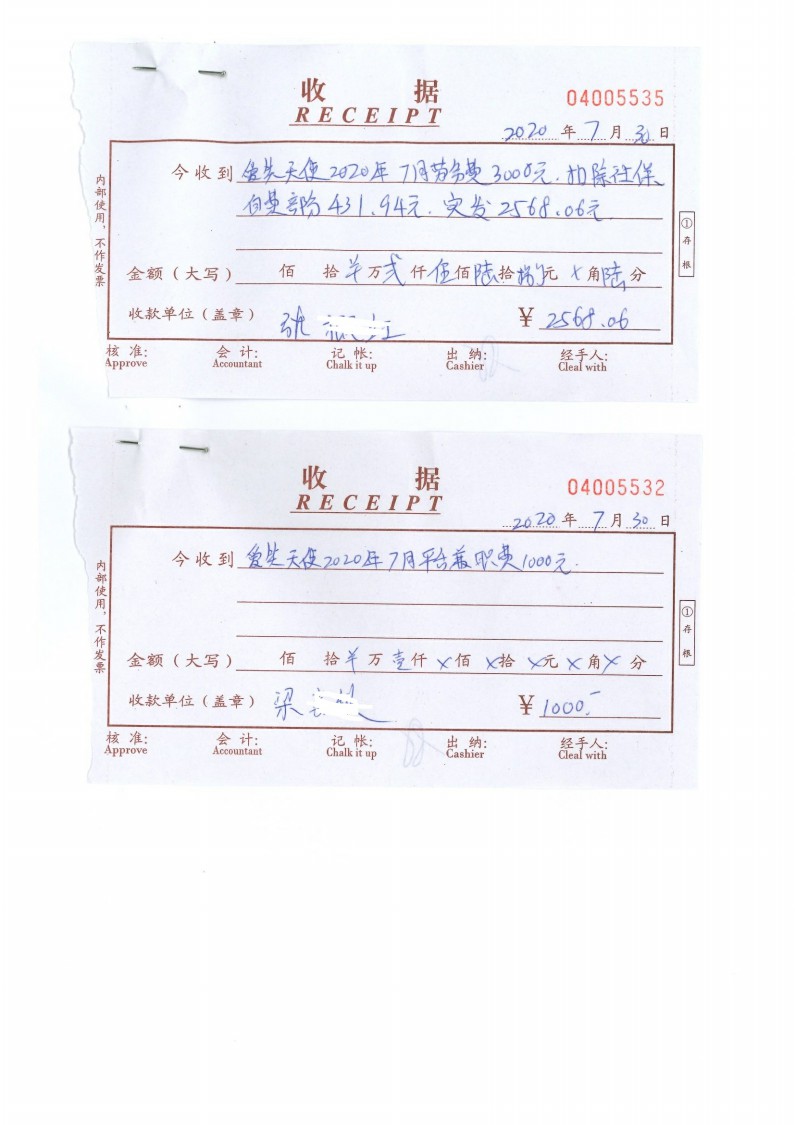 收 据
RECEIPT
04005535
2020 年 7 月 30 日
今收到 爱笑天使2020年7月劳务费3000元.扣除社保
自费部份431.94元.实发2568.06元
金额（大写） 佰 拾 ¥ 万 贰 仟 伍 佰 陆 拾 捌 元 × 角 陆 分
收款单位（盖章） 张 ¥ 2568.06
核 准: 会 计: 记 帐: 出 纳: 经手人:
Approve Accountant Chalk it up Cashier Cleal with
内部使用，不作发票
①存根
收 据
RECEIPT
04005532
2020 年 7 月 30 日
今收到 爱笑天使2020年7月平台兼职费1000元.
金额（大写） 佰 拾 ¥ 万 壹 仟 × 佰 × 拾 × 元 × 角 × 分
收款单位（盖章） 梁 ¥ 1000.-
核 准: 会 计: 记 帐: 出 纳: 经手人:
Approve Accountant Chalk it up Cashier Cleal with
内部使用，不作发票
①存根